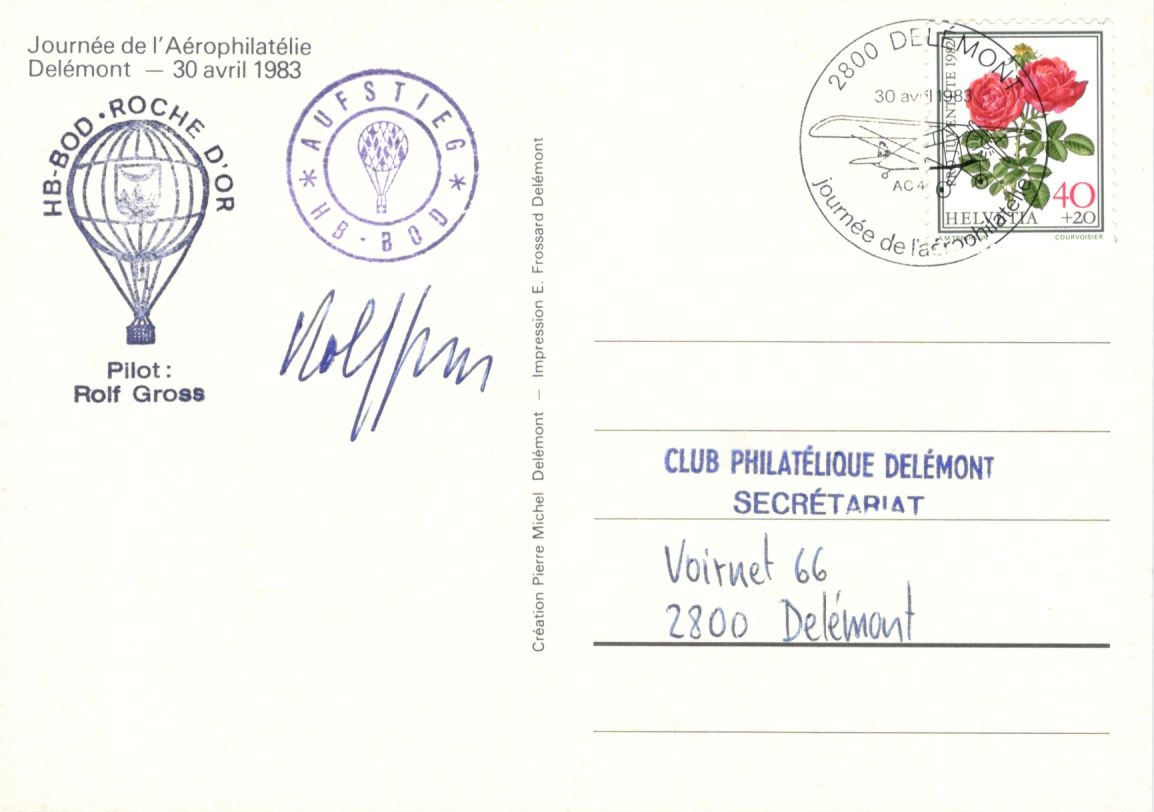 Journée de l'Aérophilatélie
Delémont — 30 avril 1983
HB-BOD · ROCHE D'OR
Pilot:
Rolf Gross
* AUFSTIEG *
HB-BOD
Création Pierre Michel Delémont — Impression E. Frossard Delémont
2800 DELÉMONT
30 avril 1983
AC 4
journée de l'aérophilatélie
PRO JUVENTUTE 1982
40
+20
HELVETIA
COURVOISIER
CLUB PHILATÉLIQUE DELÉMONT
SECRÉTARIAT
Voirnet 66
2800 Delémont